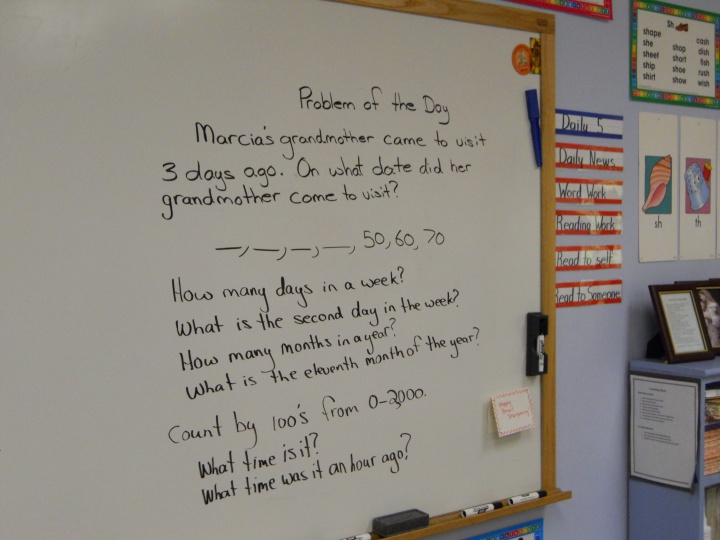 Problem of the Day
Marcia's grandmother came to visit
3 days ago. On what date did her
grandmother come to visit?
__, __, __, __, 50, 60, 70
How many days in a week?
What is the second day in the week?
How many months in a year?
What is the eleventh month of the year?
Count by 100's from 0-2,000.
What time is it?
What time was it an hour ago?
Sh
shape
she
sheet
ship
shirt
shop
short
shoe
show
cash
dish
fish
rush
wish
Daily 5
Daily News
Word Work
Reading Work
Read to self
Read to Someone
sh
th